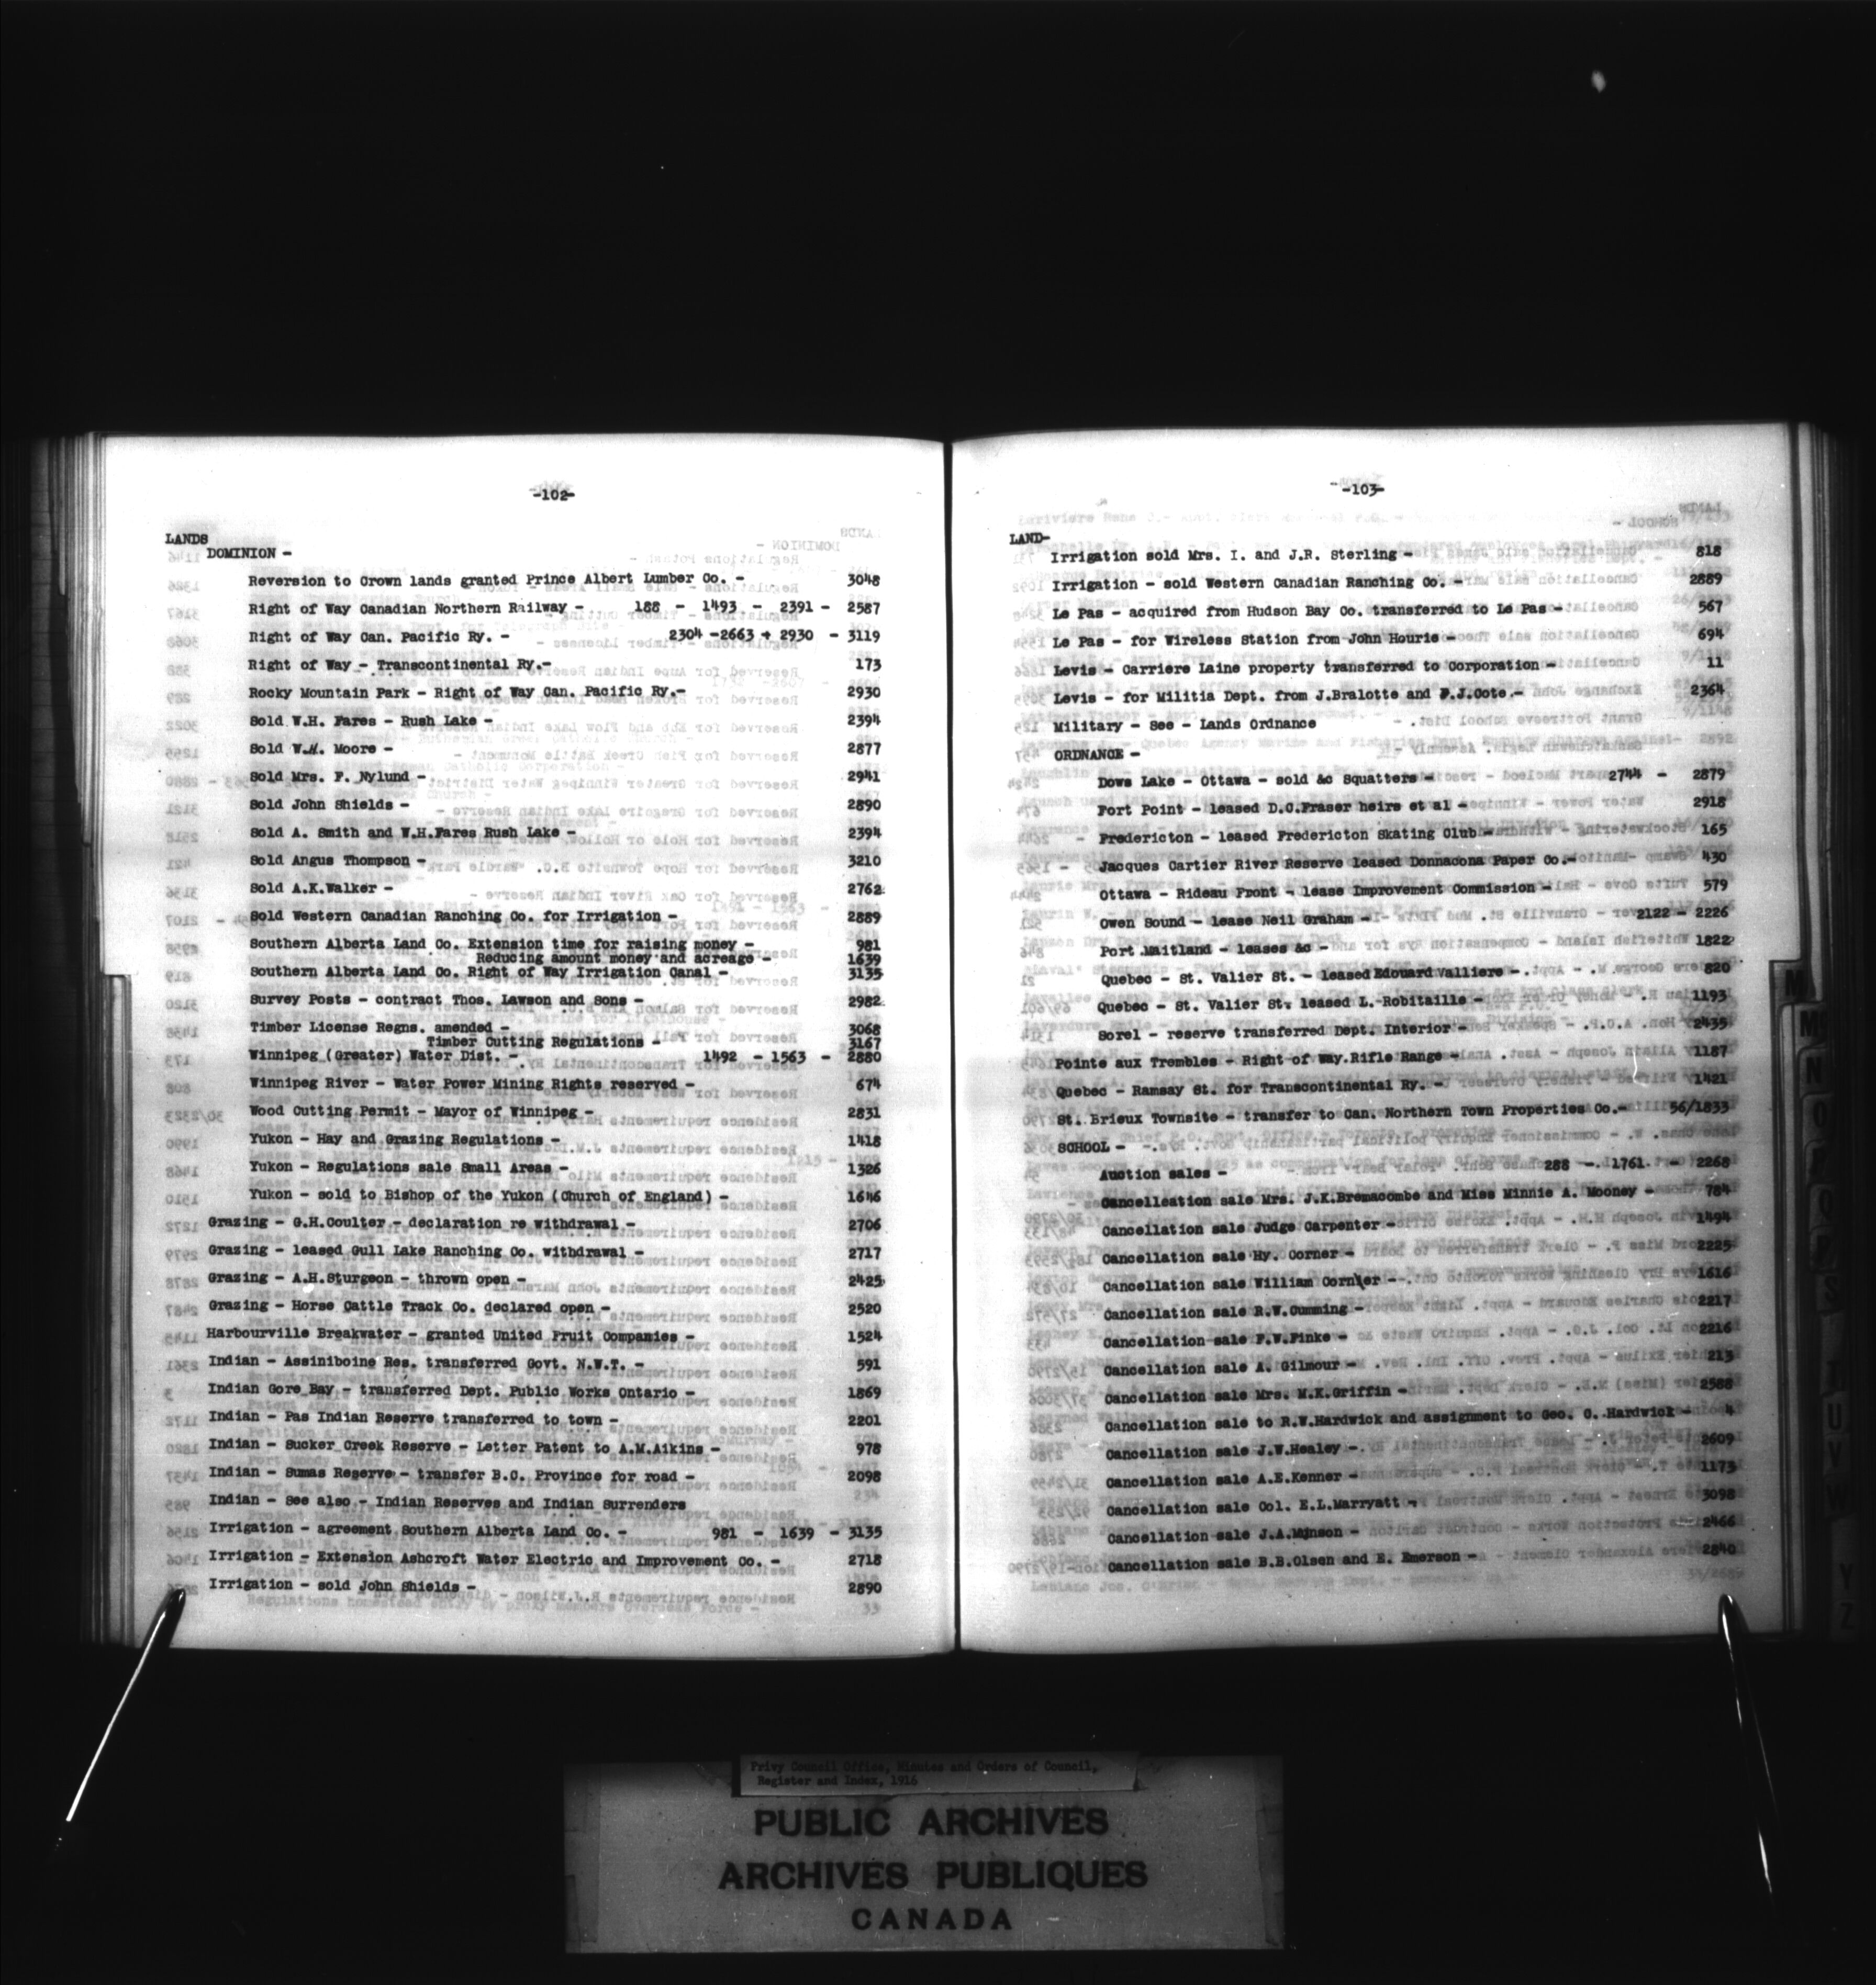 -102-
LANDS
DOMINION -
Reversion to Crown lands granted Prince Albert Lumber Co. - 3048
Right of Way Canadian Northern Railway - 188 - 1493 - 2391 - 2587
Right of Way Can. Pacific Ry. - 2304 - 2663 + 2930 - 3119
Right of Way - Transcontinental Ry.- 173
Rocky Mountain Park - Right of Way Can. Pacific Ry.- 2930
Sold W.H. Fares - Rush Lake - 2394
Sold W.H. Moore - 2877
Sold Mrs. F. Nylund - 2941
Sold John Shields - 2890
Sold A. Smith and W.H.Fares Rush Lake - 2394
Sold Angus Thompson - 3210
Sold A.K.Walker - 2762
Sold Western Canadian Ranching Co. for Irrigation - 2889
Southern Alberta Land Co. Extension time for raising money - 981
Reducing amount money and acreage - 1639
Southern Alberta Land Co. Right of Way Irrigation Canal - 3135
Survey Posts - contract Thos. Lawson and Sons - 2982
Timber License Regns. amended - 3068
Timber Cutting Regulations - 3167
Winnipeg (Greater) Water Dist. - 1492 - 1563 - 2880
Winnipeg River - Water Power Mining Rights reserved - 674
Wood Cutting Permit - Mayor of Winnipeg - 2831
Yukon - Hay and Grazing Regulations - 1418
Yukon - Regulations sale Small Areas - 1326
Yukon - sold to Bishop of the Yukon (Church of England) - 1646
Grazing - G.H.Coulter - declaration re withdrawal - 2706
Grazing - leased Gull Lake Ranching Co. withdrawal - 2717
Grazing - A.H.Sturgeon - thrown open - 2425
Grazing - Horse Cattle Track Co. declared open - 2520
Harbourville Breakwater - granted United Fruit Companies - 1524
Indian - Assiniboine Res. transferred Govt. N.W.T. - 591
Indian Gore Bay - transferred Dept. Public Works Ontario - 1869
Indian - Pas Indian Reserve transferred to town - 2201
Indian - Sucker Creek Reserve - Letter Patent to A.M.Aikins - 978
Indian - Sumas Reserve - transfer B.C. Province for road - 2098
Indian - See also - Indian Reserves and Indian Surrenders
Irrigation - agreement Southern Alberta Land Co. - 981 - 1639 - 3135
Irrigation - Extension Ashcroft Water Electric and Improvement Co. - 2718
Irrigation - sold John Shields - 2890
-103-
LAND-
Irrigation sold Mrs. I. and J.R. Sterling - 818
Irrigation - sold Western Canadian Ranching Co. - 2889
Le Pas - acquired from Hudson Bay Co. transferred to Le Pas - 567
Le Pas - for Wireless Station from John Hourie - 694
Levis - Carriere Laine property transferred to Corporation - 11
Levis - for Militia Dept. from J.Bralotte and F.J.Cote.- 2364
Military - See - Lands Ordnance
ORDNANCE -
Dows Lake - Ottawa - sold &c Squatters - 2744 - 2879
Fort Point - leased D.C.Fraser heirs et al - 2918
Fredericton - leased Fredericton Skating Club - 165
Jacques Cartier River Reserve leased Donnacona Paper Co.- 430
Ottawa - Rideau Front - lease Improvement Commission - 579
Owen Sound - lease Neil Graham - 2122 - 2226
Port Maitland - leases &c - 1822
Quebec - St. Valier St. - leased Edouard Valliere - 820
Quebec - St. Valier St. leased L. Robitaille - 1193
Sorel - reserve transferred Dept. Interior - 2435
Pointe aux Trembles - Right of Way.Rifle Range - 1187
Quebec - Ramsay St. for Transcontinental Ry. - 1421
St. Brieux Townsite - transfer to Can. Northern Town Properties Co.- 56/1833
SCHOOL -
Auction sales - 288 - 1761 - 2268
Cancelleation sale Mrs. J.K.Bremacombe and Miss Minnie A. Mooney - 784
Cancellation sale Judge Carpenter - 1494
Cancellation sale Hy. Corner - 2225
Cancellation sale William Corn\er - 1616
Cancellation sale R.W.Cumming - 2217
Cancellation sale F.W.Finke - 2216
Cancellation sale A. Gilmour - 213
Cancellation sale Mrs. M.K.Griffin - 2588
Cancellation sale to R.W.Hardwick and assignment to Geo. C. Hardwick - 4
Cancellation sale J.W.Healey - 2609
Cancellation sale A.E.Kenner - 1173
Cancellation sale Col. E.L.Marryatt - 3098
Cancellation sale J.A.Munson - 2466
Cancellation sale B.B.Olsen and E. Emerson - 2840
M
N
Y
Z
Privy Council Office, Minutes and Orders of Council,
Register and Index, 1916
PUBLIC ARCHIVES
ARCHIVES PUBLIQUES
CANADA